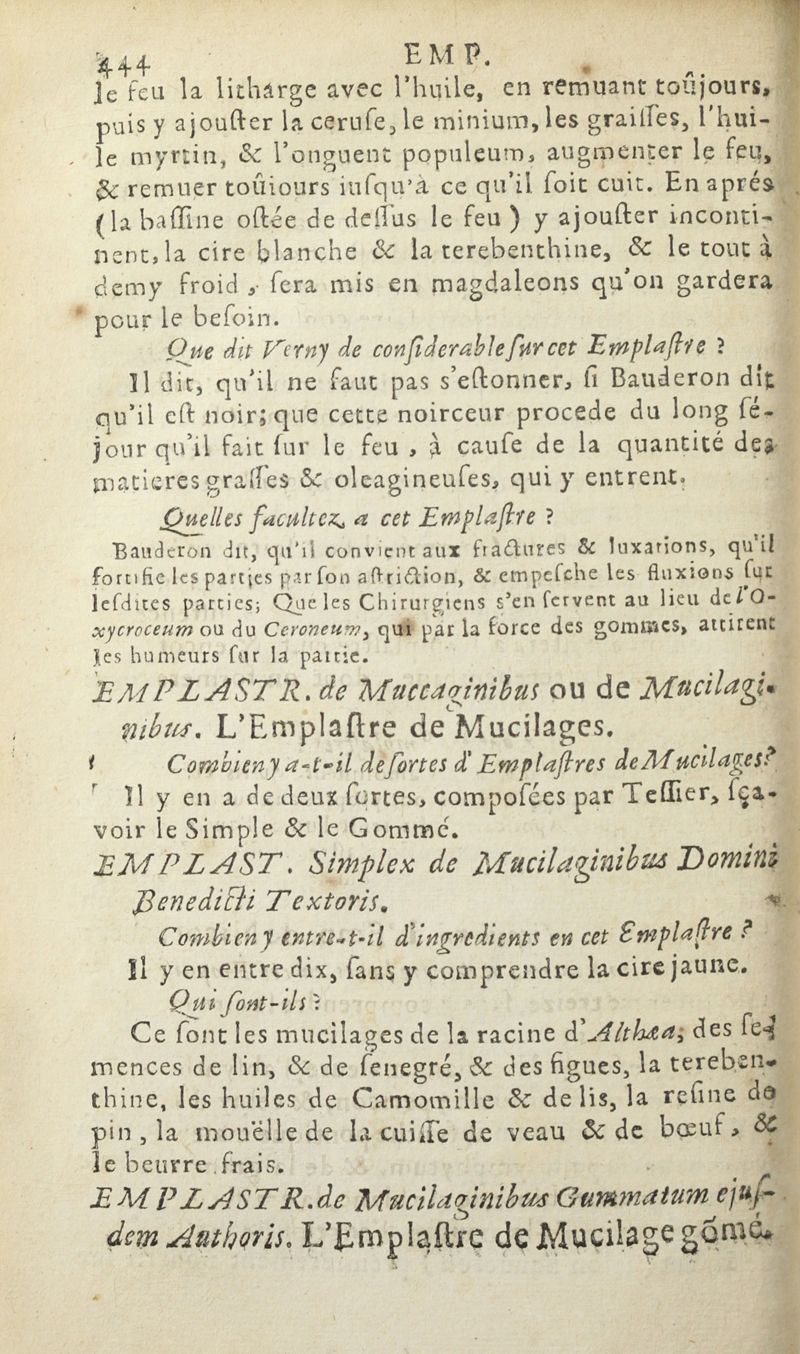 444 EMP.
le feu la litharge avec l'huile, en remuant toûjours,
puis y ajouſter la ceruſe, le minium, les graiſſes, l'hui-
le myrtin, & l'onguent populeum, augmenter le feu,
& remuer toûiours iuſqu'à ce qu'il ſoit cuit. En aprés
(la baſſine oſtée de deſſus le feu) y ajouſter inconti-
nent, la cire blanche & la terebenthine, & le tout à
demy froid, ſera mis en magdaleons qu'on gardera
pour le beſoin.
Que dit Verny de conſiderable ſur cet Emplaſtre ?
Il dit, qu'il ne faut pas s'eſtonner, ſi Bauderon dit
qu'il eſt noir; que cette noirceur procede du long ſé-
jour qu'il fait ſur le feu, à cauſe de la quantité des
matieres graſſes & oleagineuſes, qui y entrent.
Quelles facultez a cet Emplaſtre ?
Bauderon dit, qu'il convient aux fractures & luxations, qu'il
fortifie les parties par ſon aſtriction, & empeſche les fluxions ſur
leſdites parties; Que les Chirurgiens s'en ſervent au lieu de l'O-
xycroceum ou du Ceroneum, qui par la force des gommes, attirent
les humeurs ſur la partie.
EMPLASTR. de Muccaginibus ou de Mucilagi-
nibus. L'Emplaſtre de Mucilages.
Combien y a-t-il de ſortes d'Emplaſtres de Mucilages?
Il y en a de deux ſortes, compoſées par Teſſier, ſça-
voir le Simple & le Gommé.
EMPLAST. Simplex de Mucilaginibus Domini
Benedicti Textoris.
Combien y entre-t-il d'ingredients en cet Emplaſtre ?
Il y en entre dix, ſans y comprendre la cire jaune.
Qui ſont-ils ?
Ce ſont les mucilages de la racine d'Althæa, des ſe-
mences de lin, & de ſenegré, & des figues, la tereben-
thine, les huiles de Camomille & de lis, la reſine de
pin, la mouëlle de la cuiſſe de veau & de bœuf, &
le beurre frais.
EMPLASTR. de Mucilaginibus Gummatum ejuſ-
dem Authoris. L'Emplaſtre de Mucilage gõmé.